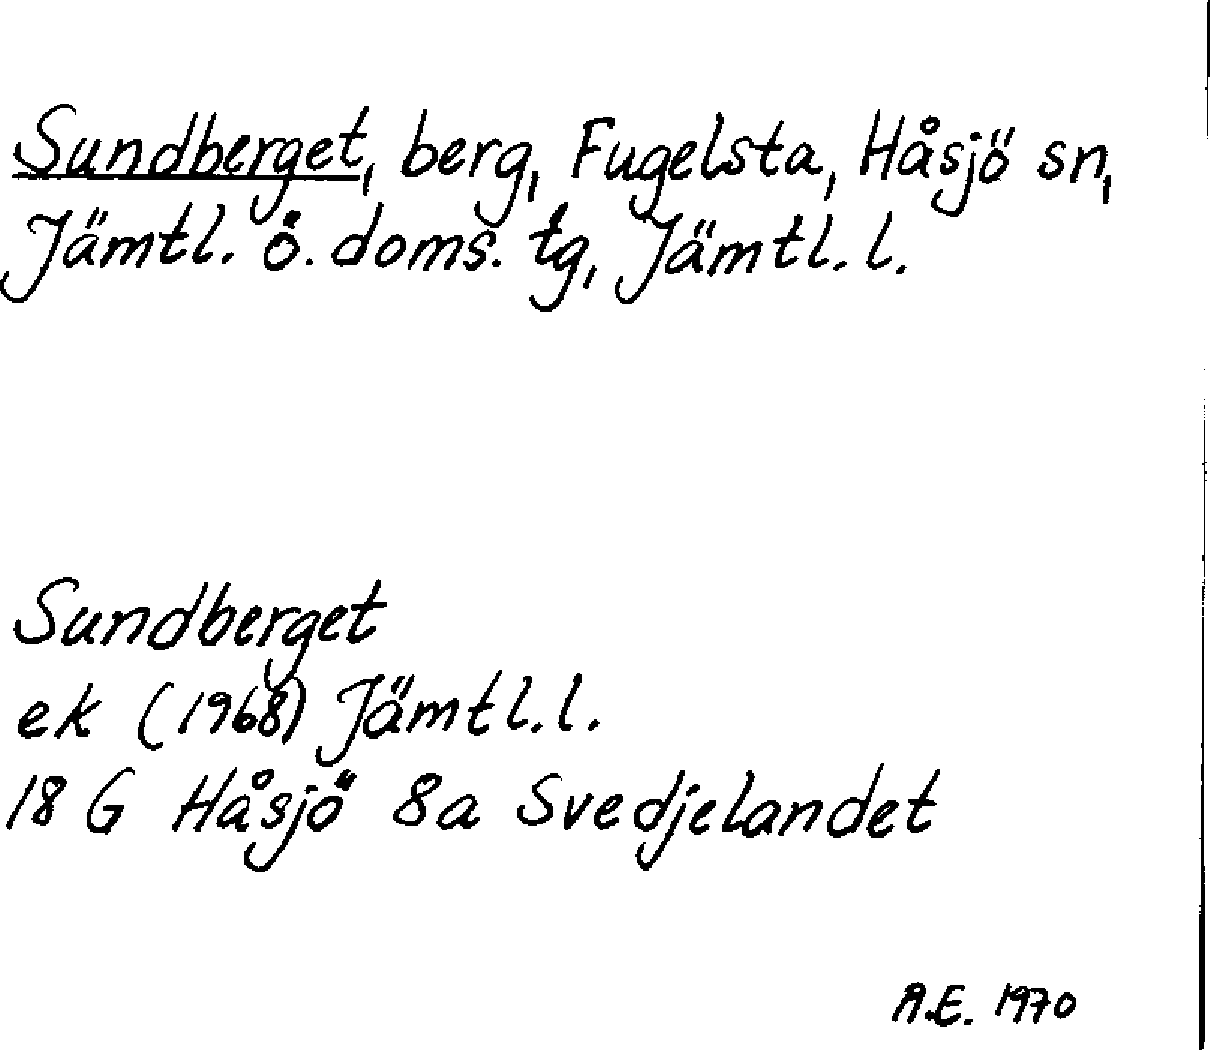 Sundberget, berg, Fugelsta, Håsjö sn,
Jämtl. ö. doms. tg, Jämtl. l.
Sundberget
ek (1968) Jämtl. l.
18 G Håsjö 8a Svedjelandet
A.E. 1970